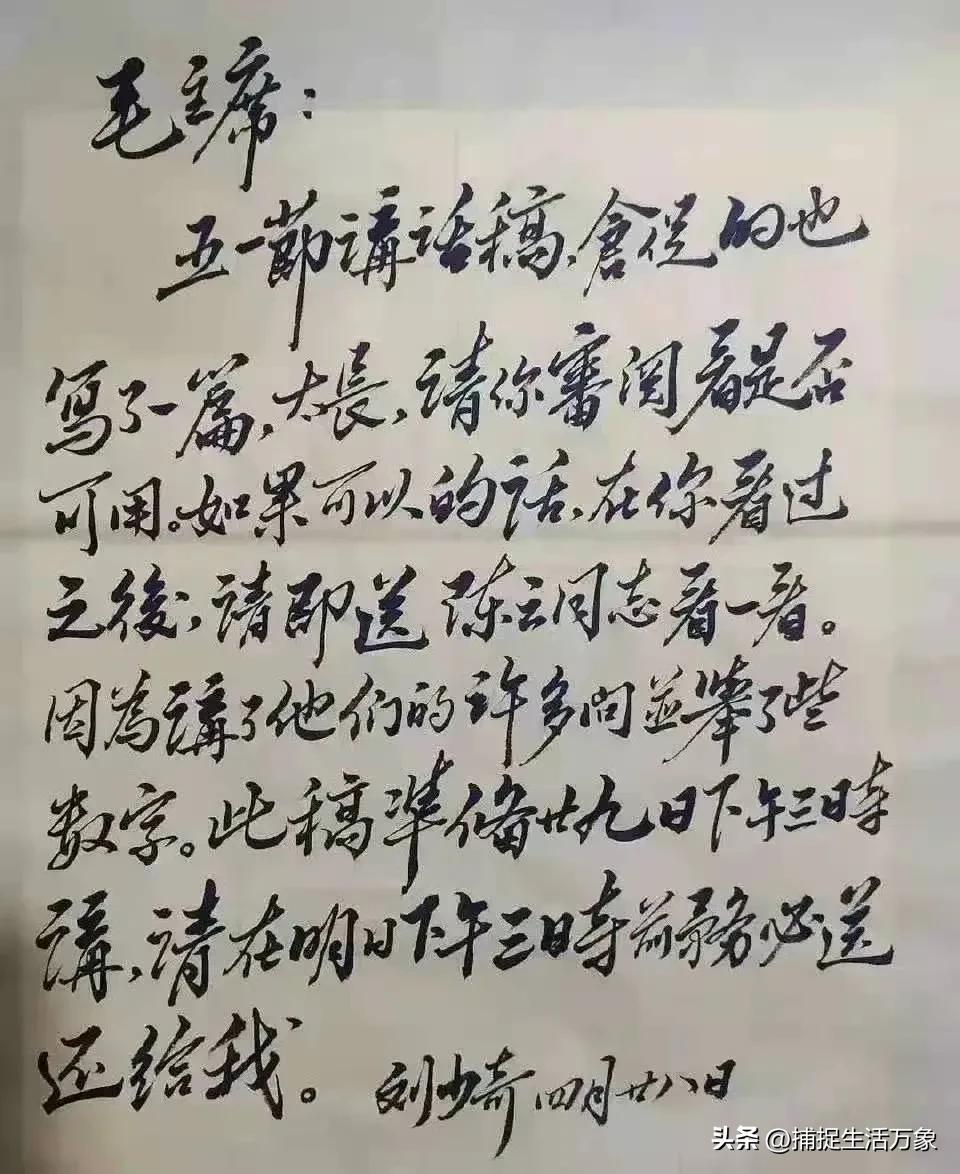 毛主席：
五一節講話稿，倉促的也
寫了一篇，太長，請你審閱看是否
可用。如果可以的話，在你看过
之後，請即送陈云同志看一看。
因為講了他们的许多问並舉了些
数字。此稿準備廿九日下午三时
講，請在明日下午三时前務必送
还给我。刘少奇 四月廿八日
头条 @捕捉生活万象